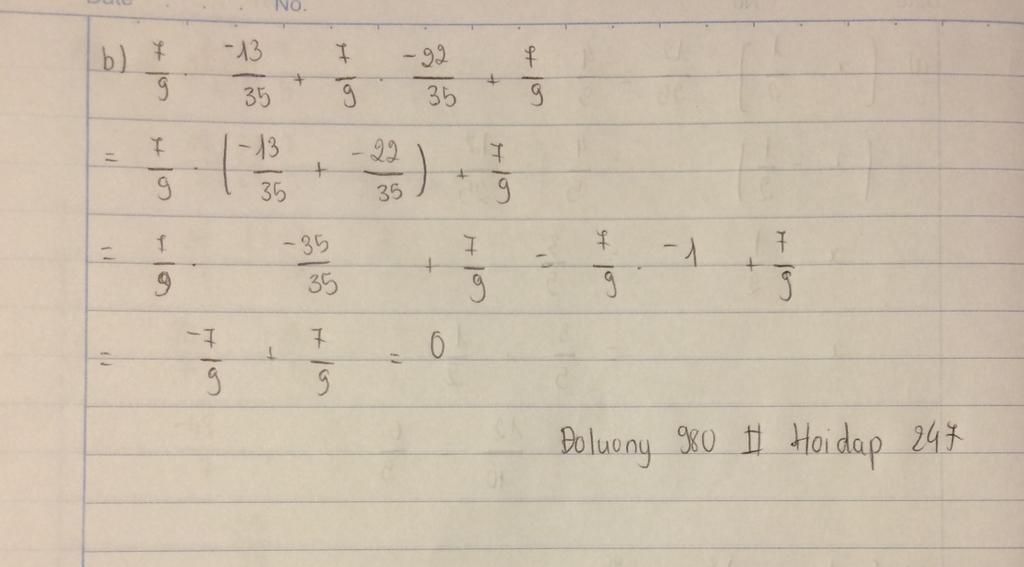 Date No.
b) 7/9 . -13/35 + 7/9 . -22/35 + 7/9
= 7/9 . (-13/35 + -22/35) + 7/9
= 7/9 . -35/35 + 7/9 = 7/9 . -1 + 7/9
= -7/9 + 7/9 = 0
Doluony 980 II Hoidap 247